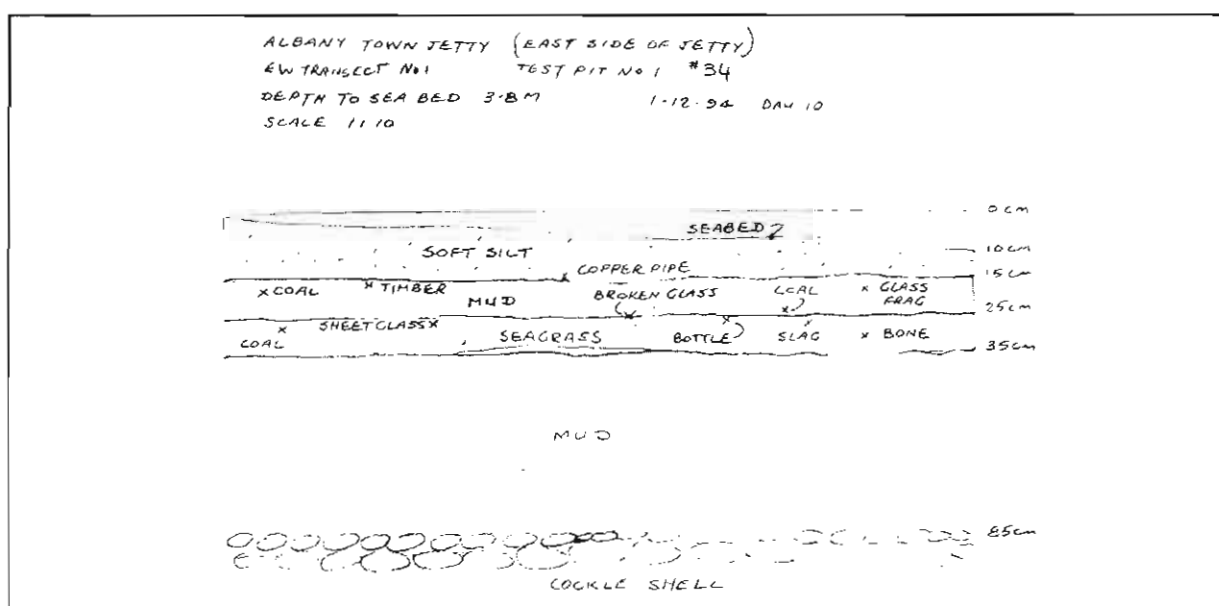 ALBANY TOWN JETTY (EAST SIDE OF JETTY)
EW TRANSECT No1 TEST PIT No 1 #34
DEPTH TO SEA BED 3.8M 1.12.94 DAY 10
SCALE 1:10
0cm
SEABED
SOFT SILT 10cm
COPPER PIPE 15cm
x COAL x TIMBER MUD BROKEN GLASS COAL x GLASS FRAG
25cm
COAL SHEET GLASS x SEAGRASS BOTTLE SLAG x BONE
35cm
MUD
85cm
COCKLE SHELL